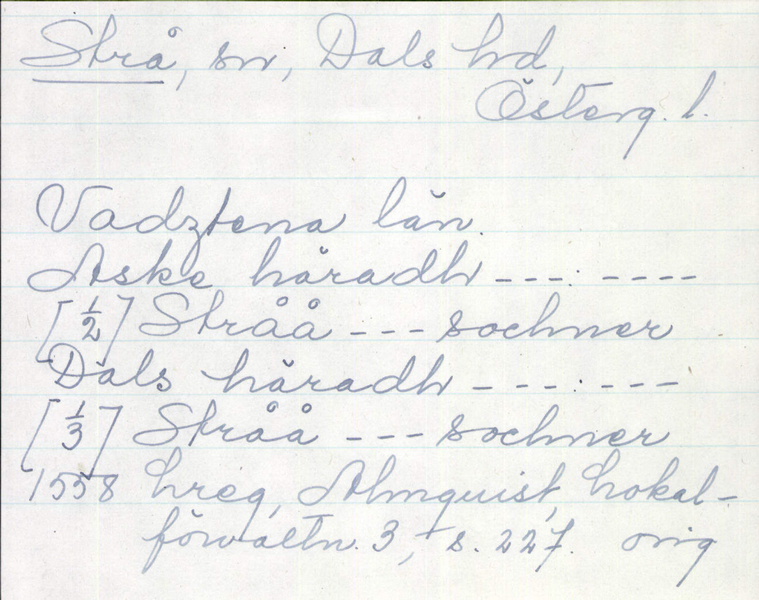 Strå, sn, Dals hd,
Österg. l.
Vadztena län.
Aske häradh ---:----
[1/2] Stråå --- sochner
Dals häradh ---:---
[1/3] Stråå --- sochner
1558 hreg, Almquist, Lokal-
förvaltn. 3, s. 227. orig